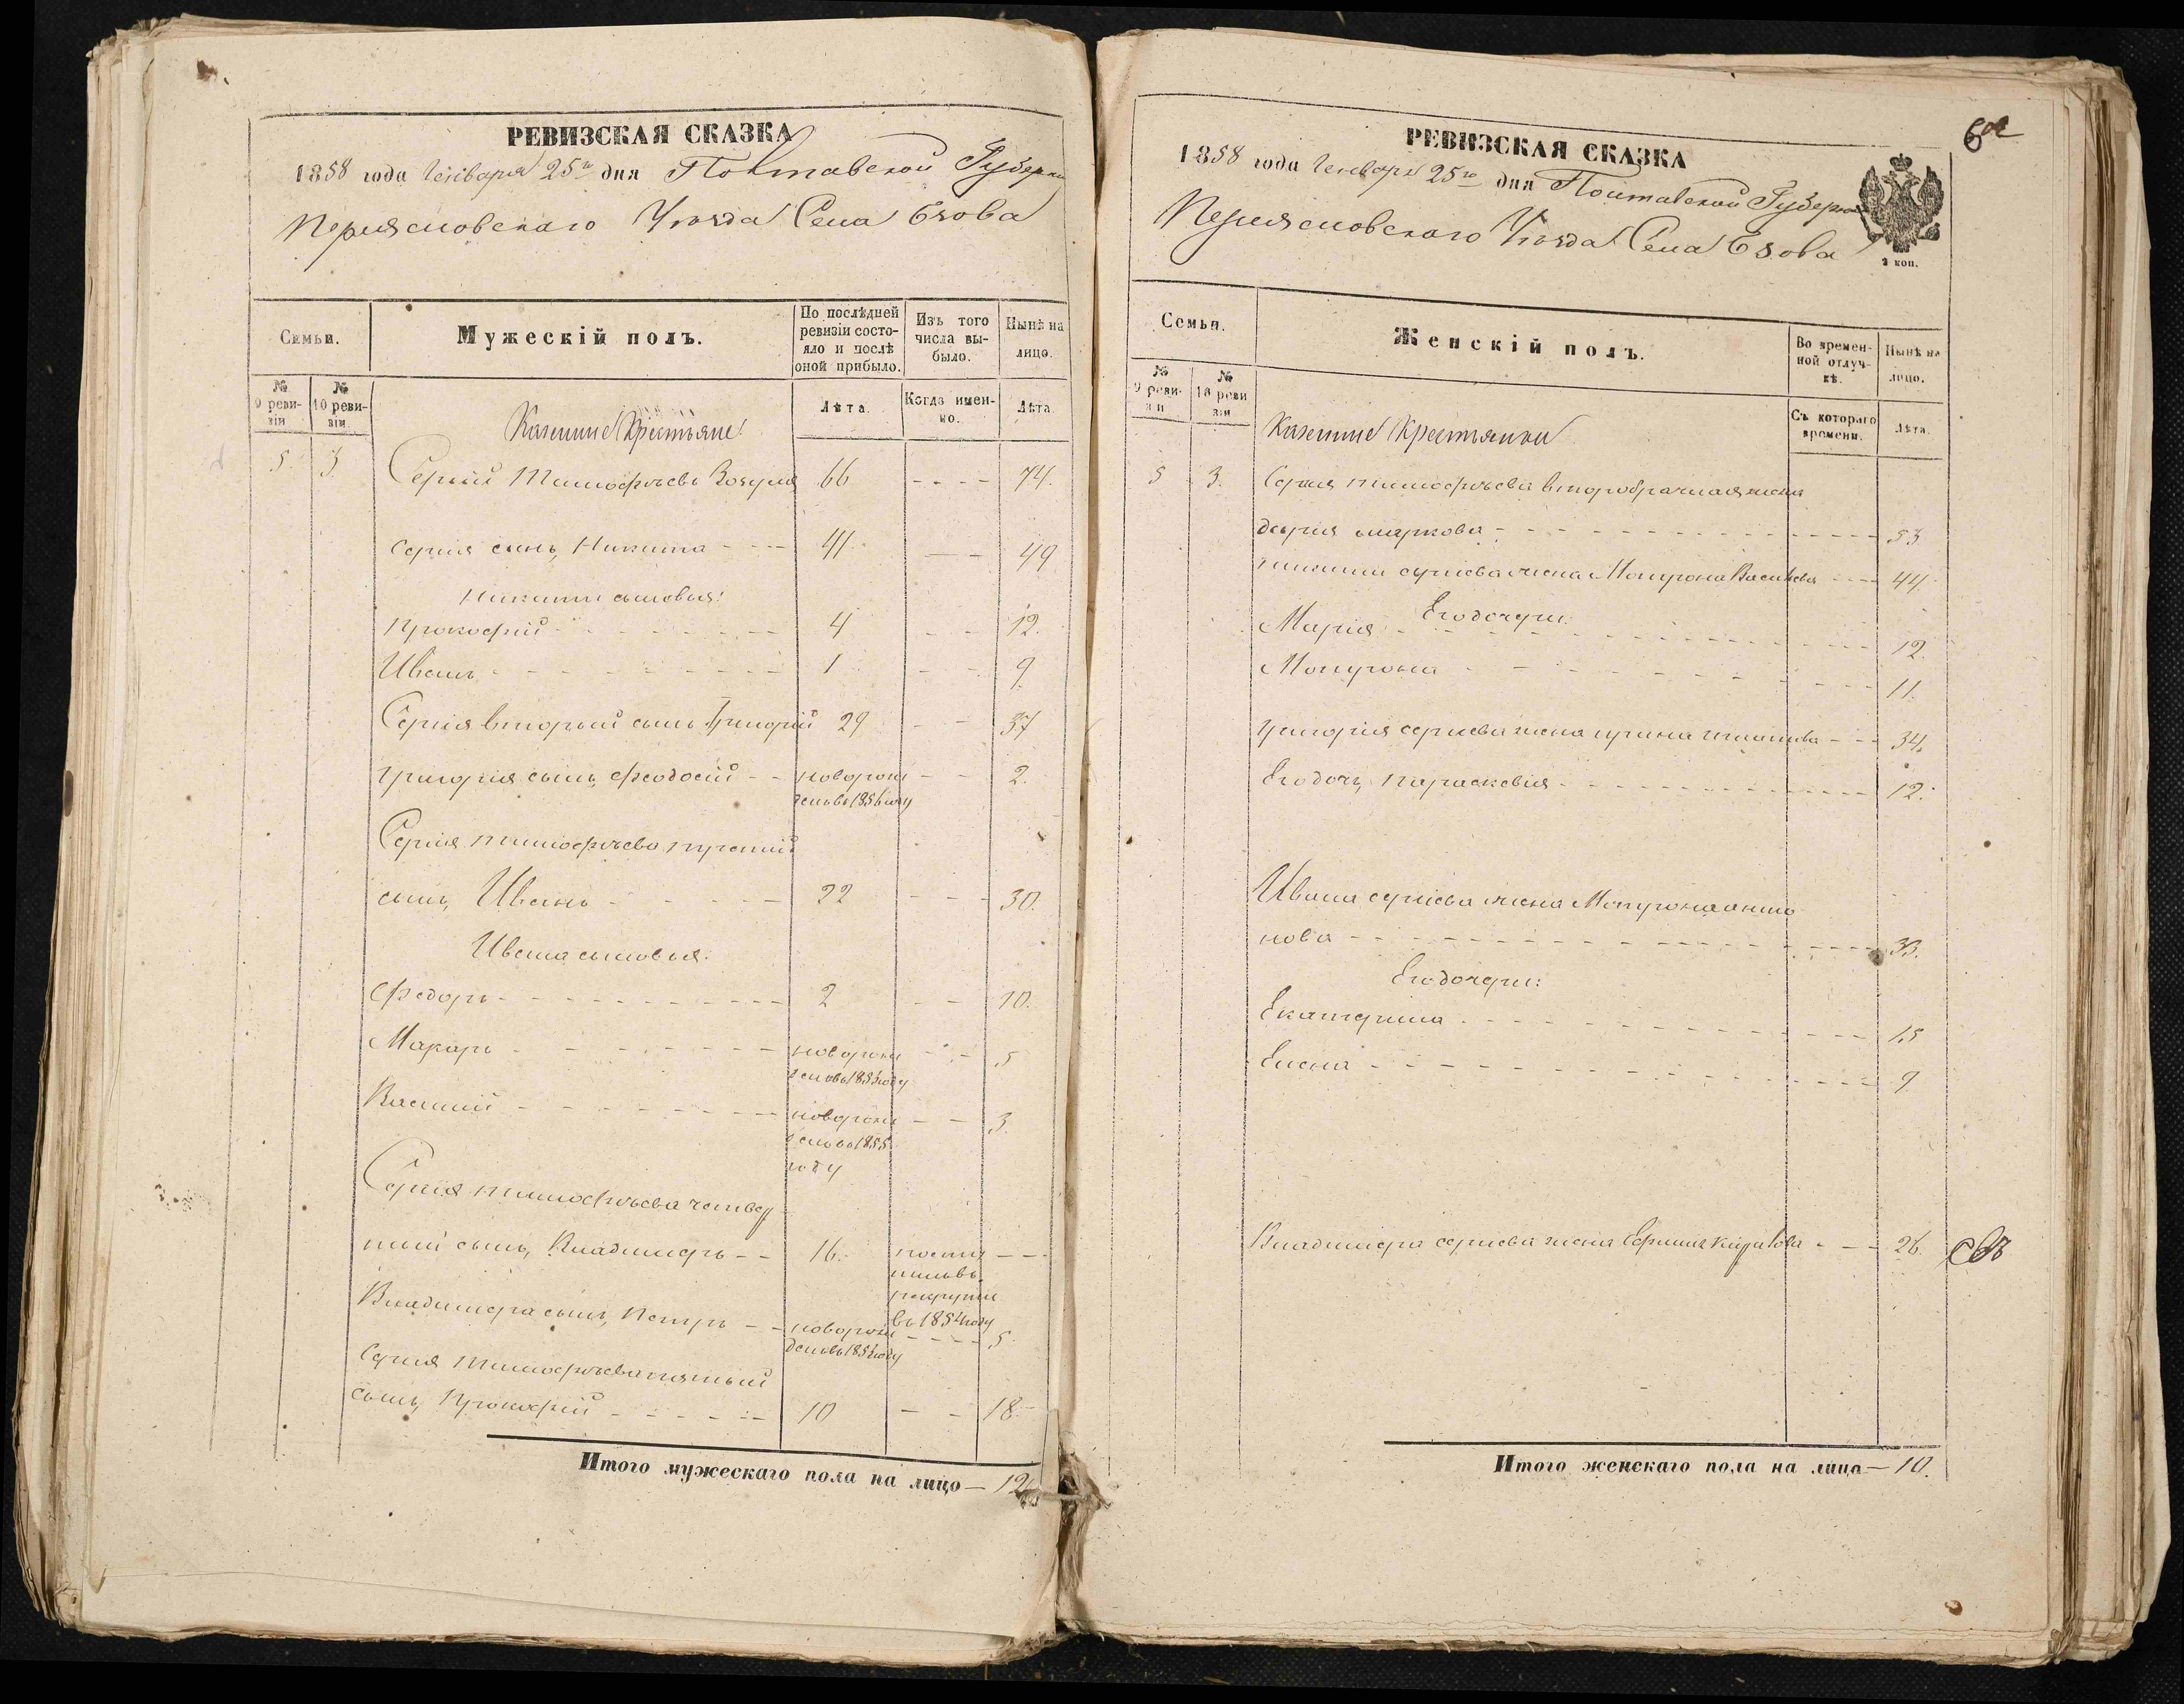 РЕВИЗСКАЯ СКАЗКА
1858 года Генваря 25го дня Полтавской Губернии
Переясловскаго Уѣзда Села Езова
Семьи.
Мужескій полъ.
По послѣдней ревизіи состояло и послѣ оной прибыло.
Изъ того числа выбыло.
Нынѣ на лицо.
№ 9 ревизіи
№ 10 ревизіи
Лѣта.
Когда именно.
Лѣта
Казенные Крестьяне:
5. 3. Сергій Тимофѣевъ 66 - - - - 74.
Сергія сынъ, Никита - - - 41 - - 49
Никиты сыновья:
Прокофій - - - 4 - - 12.
Иванъ - - - 1 - - 9.
Сергія вторый сынъ Григорій 29 - - 37
Григорія сынъ, Феодосій - - новорож - - 2.
денъ въ 1856 году
Сергія Тимофѣева третій
сынъ, Иванъ - - - 22 - - - 30.
Ивана сыновья:
Федоръ - - - 2 - - 10.
Макаръ - - - новорож - - 5
денъ въ 1853 году
Василій - - - новорож - - 3.
денъ въ 1855
году
Сергія Тимофѣева четвер
тый сынъ, Владимеръ - - 16. поступ - - -
пилъ въ
рекруты
въ 1854 году
Владимера сынъ, Петръ - - новорож - - - - 5.
денъ въ 1853 году
Сергія Тимофѣева пятый
сынъ, Прокофій - - - 10 - - 18.
Итого мужескаго пола на лицо — 12
РЕВИЗСКАЯ СКАЗКА
1858 года Генваря 25го дня Полтавской Губернии
Переясловскаго Уѣзда Села Езова
2 коп.
Семьи.
Женскій полъ.
Во временной отлучкѣ.
Нынѣ на лицо.
№ 9 ревизіи
№ 10 ревизіи
Съ котораго времени.
Лѣта.
Казенные Крестьянки
5 3. Сергія Тимофѣева второбрачная жена
Дарія Маркова - - - 53
Никиты Сергіева жена Мотрона Васильева - - - 44.
Его дочери:
Марія - - - 12.
Мотрона - - - 11.
Григорія Сергіева жена Ирина - - 34.
Его дочь, Параскевія - - - 12.
Ивана Сергіева жена Мотрона Анто
нова - - - 33.
Его дочери:
Екатерина - - - 15
Елена - - - 9
Владимера Сергіева жена - - - 26.
Итого женскаго пола на лицо — 10.